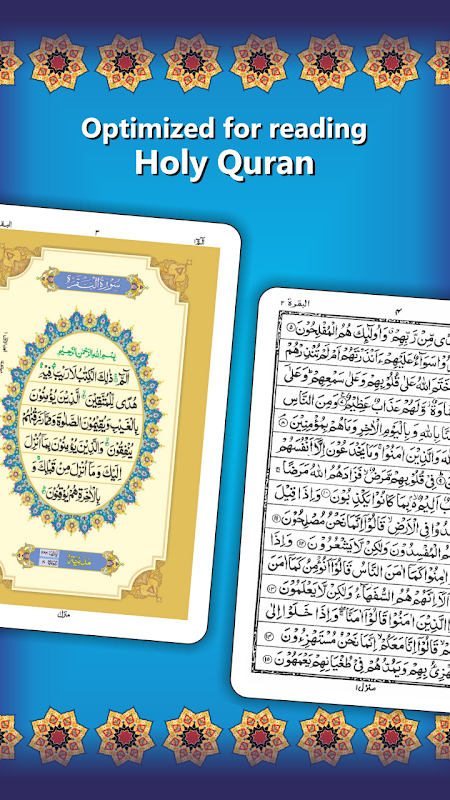 Optimized for reading
Holy Quran
٣
سورة البقرة
بِسْمِ اللهِ الرَّحْمٰنِ الرَّحِيْمِ
الٓمّٓ ذٰلِكَ الْكِتٰبُ لَا رَيْبَ فِيْهِ
هُدًى لِّلْمُتَّقِيْنَ الَّذِيْنَ يُؤْمِنُوْنَ
بِالْغَيْبِ وَيُقِيْمُوْنَ الصَّلٰوةَ وَمِمَّا رَزَقْنٰهُمْ
يُنْفِقُوْنَ وَالَّذِيْنَ يُؤْمِنُوْنَ بِمَآ اُنْزِلَ
اِلَيْكَ وَمَآ اُنْزِلَ مِنْ قَبْلِكَ وَ
بِالْاٰخِرَةِ هُمْ يُوْقِنُوْنَ
منزل
البقرة ٢
٤
هُدًى مِّنْ رَّبِّهِمْ وَاُولٰٓئِكَ هُمُ الْمُفْلِحُوْنَ ٥
سَوَآءٌ عَلَيْهِمْ ءَاَنْذَرْتَهُمْ اَمْ لَمْ تُنْذِرْهُمْ
خَتَمَ اللهُ عَلٰى قُلُوْبِهِمْ وَعَلٰى سَمْعِهِمْ وَعَلٰٓى
غِشَاوَةٌ وَّلَهُمْ عَذَابٌ عَظِيْمٌ وَمِنَ النَّاسِ
اٰمَنَّا بِاللهِ وَبِالْيَوْمِ الْاٰخِرِ وَمَا هُمْ بِمُؤْمِنِيْنَ
وَالَّذِيْنَ اٰمَنُوْا وَمَا يَخْدَعُوْنَ اِلَّآ اَنْفُسَهُمْ
فِيْ قُلُوْبِهِمْ مَّرَضٌ فَزَادَهُمُ اللهُ مَرَضًا
اَلِيْمٌ بِمَا كَانُوْا يَكْذِبُوْنَ ١٠ وَاِذَا قِيْلَ
تُفْسِدُوْا فِي الْاَرْضِ قَالُوْٓا اِنَّمَا نَحْنُ مُصْلِحُوْنَ
الْمُفْسِدُوْنَ وَلٰكِنْ لَّا يَشْعُرُوْنَ ١٢ وَاِذَا
اٰمِنُوْا كَمَآ اٰمَنَ النَّاسُ قَالُوْٓا اَنُؤْمِنُ كَمَآ اٰمَنَ
اَلَآ اِنَّهُمْ هُمُ السُّفَهَآءُ وَلٰكِنْ لَّا يَعْلَمُوْنَ ١٣
الَّذِيْنَ اٰمَنُوْا قَالُوْٓا اٰمَنَّا وَاِذَا خَلَوْا اِلٰى
قَالُوْٓا اِنَّا مَعَكُمْ اِنَّمَا نَحْنُ مُسْتَهْزِءُوْنَ ١٤
يَسْتَهْزِئُ بِهِمْ وَيَمُدُّهُمْ فِيْ طُغْيَانِهِمْ يَعْمَهُوْنَ ١٥
منزل ١